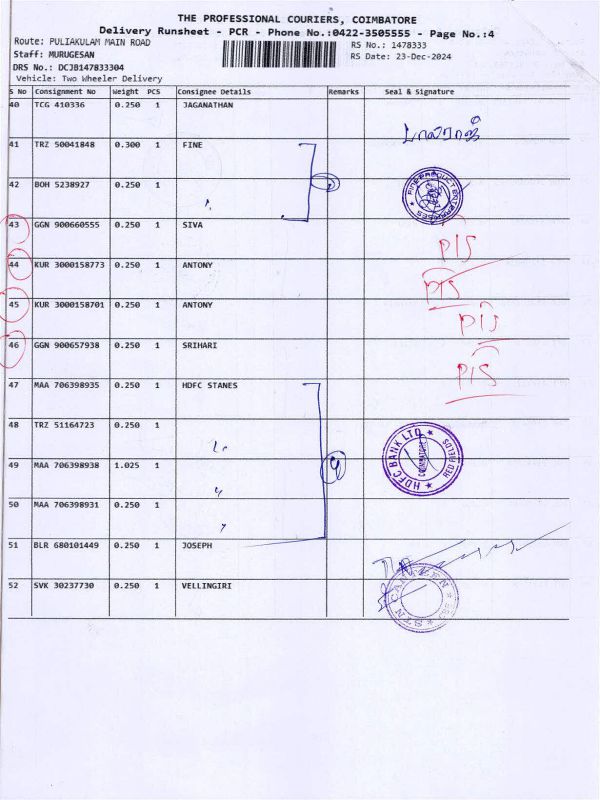 THE PROFESSIONAL COURIERS, COIMBATORE
Delivery Runsheet - PCR - Phone No.:0422-3505555 - Page No.:4
Route: PULIAKULAM MAIN ROAD
RS No.: 1478333
Staff: MURUGESAN
RS Date: 23-Dec-2024
DRS No.: DCJB147833304
Vehicle: Two Wheeler Delivery
S No Consignment No Weight PCS Consignee Details Remarks Seal & Signature
40 TCG 410336 0.250 1 JAGANATHAN
41 TRZ 50041848 0.300 1 FINE
42 BOH 5238927 0.250 1
43 GGN 900660555 0.250 1 SIVA PIS
44 KUR 3000158773 0.250 1 ANTONY PIS
45 KUR 3000158701 0.250 1 ANTONY PIS
46 GGN 900657938 0.250 1 SRIHARI PIS
47 MAA 706398935 0.250 1 HDFC STANES
48 TRZ 51164723 0.250 1
HDFC BANK LTD
RED FIELDS
COIMBATORE
49 MAA 706398938 1.025 1
4
50 MAA 706398931 0.250 1
51 BLR 680101449 0.250 1 JOSEPH
52 SVK 30237730 0.250 1 VELLINGIRI